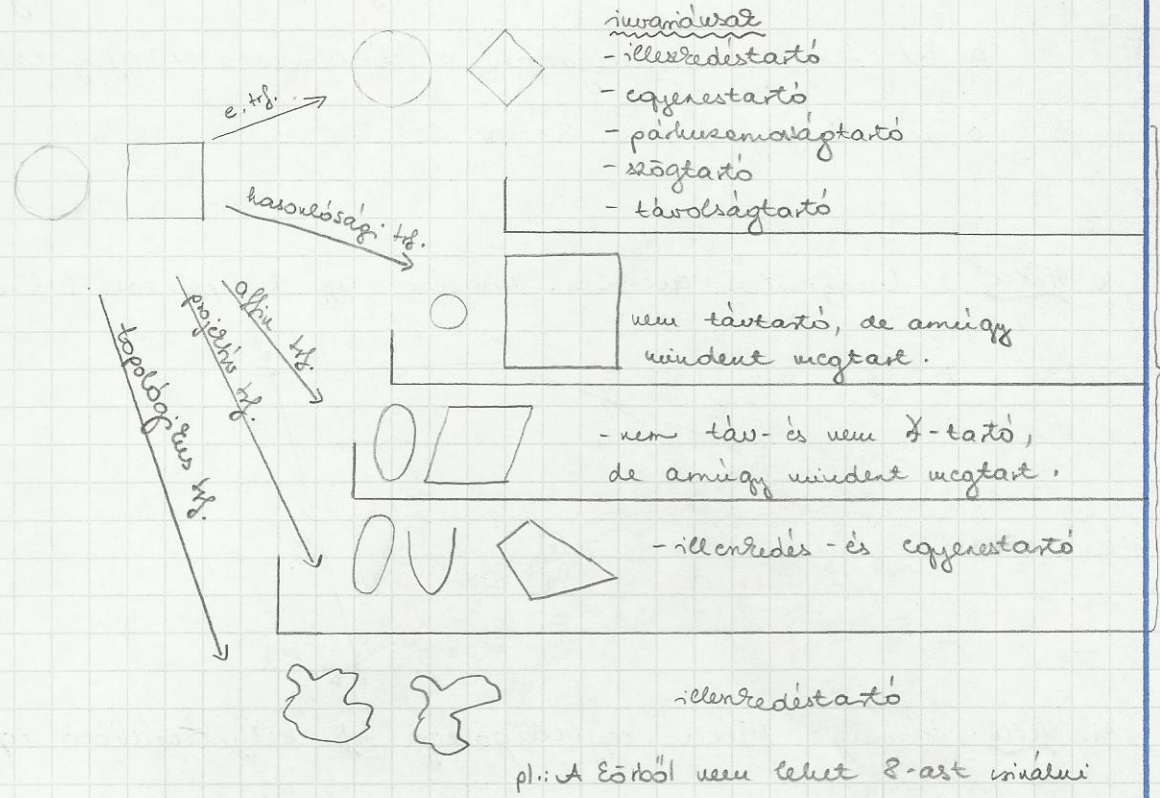 invariánsak
- illeszkedéstartó
- egyenestartó
- párhuzamosságtartó
- szögtartó
- távolságtartó
e. trf.
hasonlósági trf.
affin trf.
projektív trf.
topológikus trf.
nem távtartó, de amúgy
mindent megtart.
- nem táv- és nem ∡-tartó,
de amúgy mindent megtart.
- illeszkedés - és egyenestartó
illeszkedéstartó
pl.: A körből nem lehet 8-ast csinálni